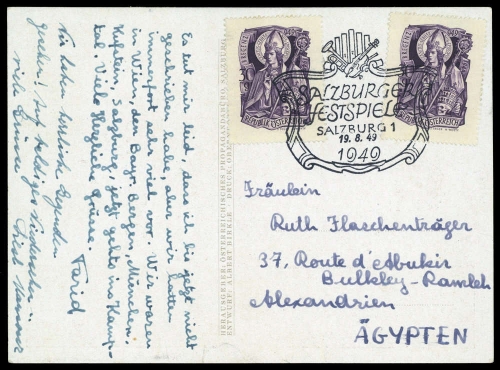 Es tut mir leid, dass ich bis jetzt nicht
geschrieben habe, aber wir hatten
immerfort sehr viel vor. Wir waren
in Wien, den Bayr. Bergen, München,
Kufstein, Salzburg, jetzt gehts ins Kamp-
tal. Viele herzliche Grüsse.
Farid
Wir haben herrliche Gegenden
gesehen! Auf baldiges
viele Grüsse
HERAUSGEBER: ÖSTERREICHISCHES PROPAGANDABÜRO, SALZBURG
ENTWURF: ALBERT BIRKLE DRUCK:
BREGENZ
REPUBLIK ÖSTERREICH
BREGENZ
REPUBLIK ÖSTERREICH
SALZBURGER
FESTSPIELE
SALZBURG 1
19.8.49
1949
Fräulein
Ruth Flaschenträger
37, Route d'Aboukir
Bulkley-Ramleh
Alexandrien
ÄGYPTEN